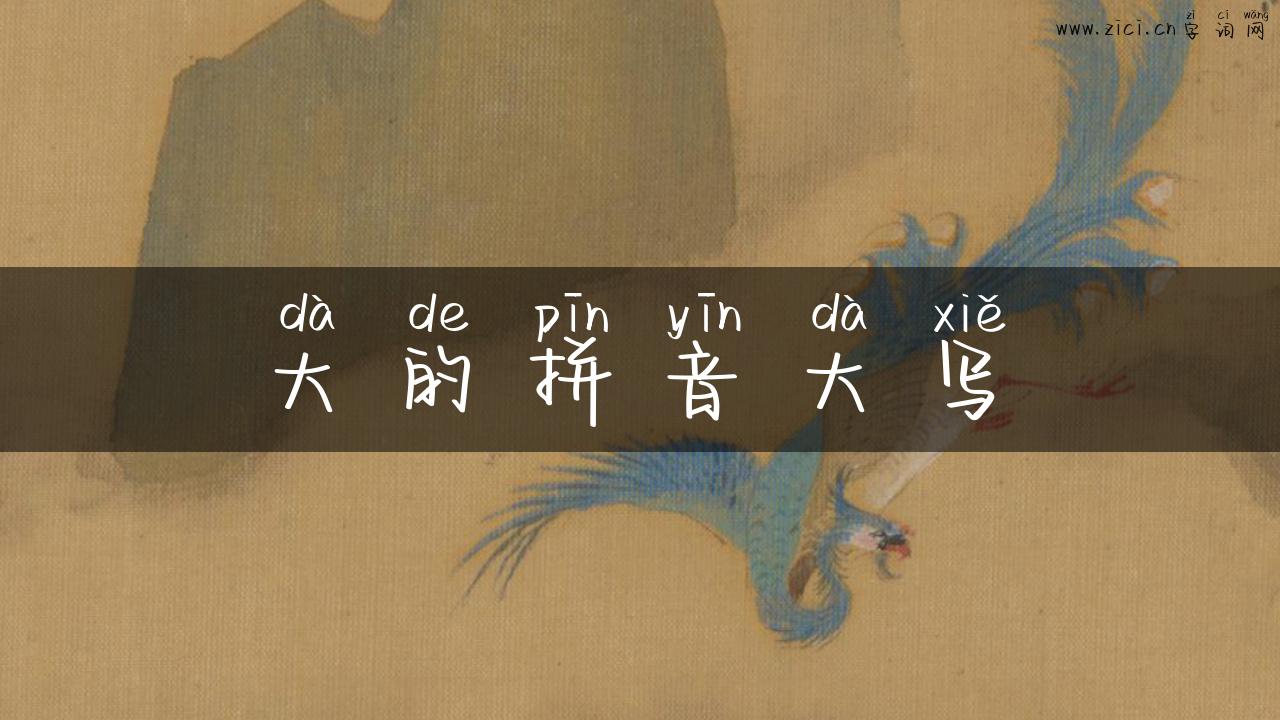 zì cí wǎng
www.zici.cn 字词网
dà de pīn yīn dà xiě
大的拼音大写